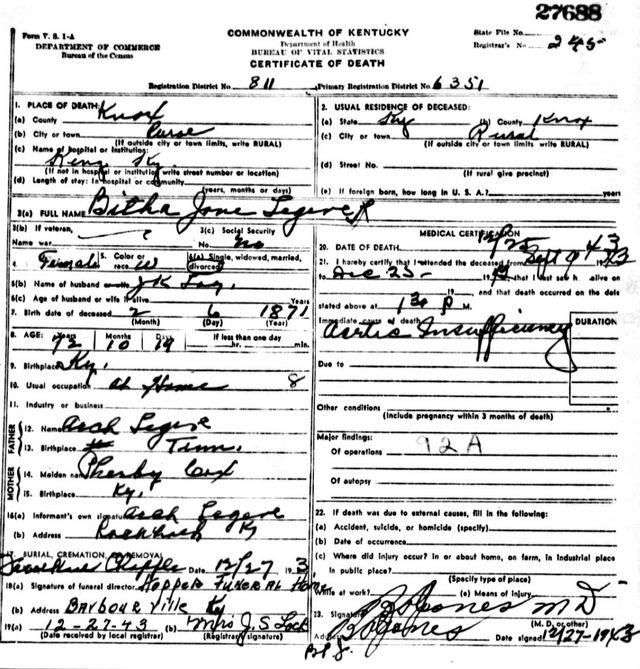 27688
Form V. S. 1-A
DEPARTMENT OF COMMERCE
Bureau of the Census
COMMONWEALTH OF KENTUCKY
Department of Health
BUREAU OF VITAL STATISTICS
CERTIFICATE OF DEATH
State File No.
Registrar's No. 245
Registration District No. 811 Primary Registration District No. 6351
1. PLACE OF DEATH:
(a) County Knox
(b) City or town
(If outside city or town limits, write RURAL)
(c) Name of hospital or institution:
Ky.
(If not in hospital or institution write street number or location)
(d) Length of stay: In hospital or community
(years, months or days)
2. USUAL RESIDENCE OF DECEASED:
(a) State Ky (b) County Knox
(c) City or town Rural
(If outside city or town limits, write RURAL)
(d) Street No.
(If rural give precinct)
(e) If foreign born, how long in U. S. A.? years
3(a) FULL NAME Bitha Jane
3(b) If veteran,
Name war
3(c) Social Security
No. no
4. Female 5. Color or race W 6(a) Single, widowed, married,
divorced
6(b) Name of husband or wife J K
6(c) Age of husband or wife if alive Years
7. Birth date of deceased 2 6 1871
(Month) (Day) (Year)
8. AGE: Years Months Days If less than one day
72 10 19 hr. min.
9. Birthplace Ky.
10. Usual occupation at Home 8
11. Industry or business
FATHER
12. Name Arch Legere
13. Birthplace Tenn.
MOTHER
14. Maiden name Cox
15. Birthplace Ky.
16(a) Informant's own signature Arch Legere
(b) Address Ky
17. BURIAL, CREMATION, OR REMOVAL
Chapple 12/27 1943
18(a) Signature of funeral director Hopper Funeral Home
(b) Address Barbourville Ky
19(a) 12-27-43 (b) Mrs J. S. Lock
(Date received by local registrar) (Registrar's signature)
MEDICAL CERTIFICATION
20. DATE OF DEATH 12/25 43
21. I hereby certify that I attended the deceased from Sept 9 1943
to Dec 25 1943, that I last saw h alive on
19 , and that death occurred on the date
stated above at 1 30 P M.
Immediate cause of death
Aortic Insufficiency
DURATION
Due to
Other conditions
(Include pregnancy within 3 months of death)
Major findings:
Of operations 92A
Of autopsy
22. If death was due to external causes, fill in the following:
(a) Accident, suicide, or homicide (specify)
(b) Date of occurrence
(c) Where did injury occur? In or about home, on farm, in industrial place
In public place?
(Specify type of place)
While at work? (e) Means of injury
23. Signature Jones M D
(M. D. or other)
Address Date signed 12/27-1943